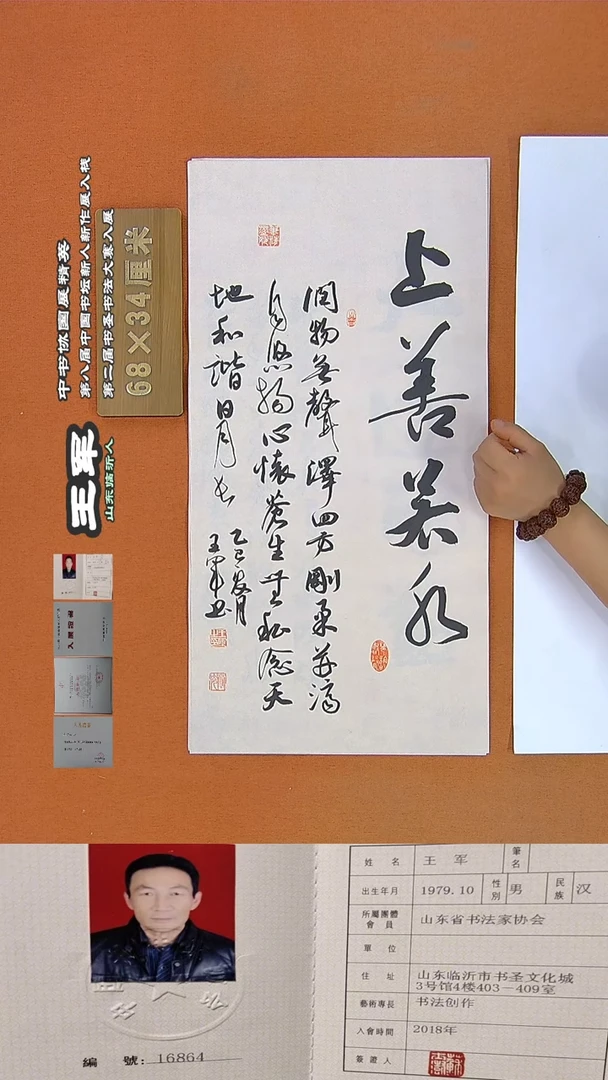 中书协国展精英
第八届中国书坛新人新作展入展
第二届书圣书法大赛入展
68×34厘米
王军
山东临沂人
上善若水
润物无聲澤四方剛柔并濟
自悠揚心懷蒼生無私念天
地和諧日月长
乙巳
王军书
姓 名 王 军 筆名
出生年月 1979.10 性別 男 民族 汉
所屬團體會員 山东省书法家协会
單 位
住 址 山东临沂市书圣文化城
3号馆4楼403—409室
藝術專長 书法创作
入會時間 2018年
簽證人
編 號: 16864